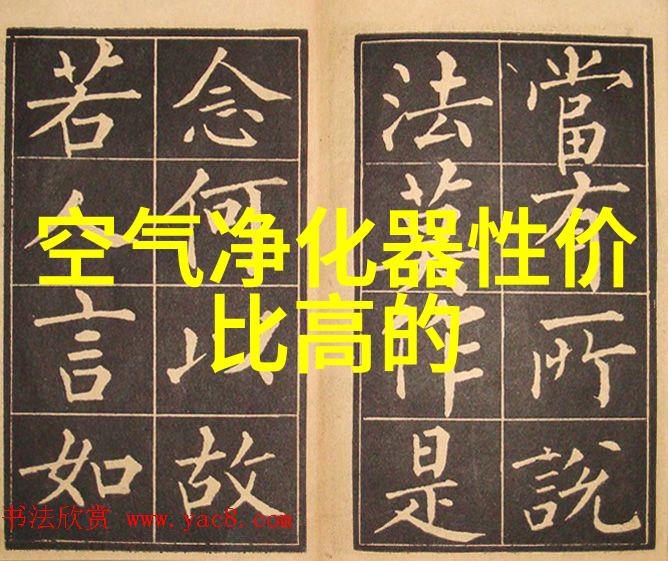 當有所說
法莫作是
念何以故
若人言如
空气净化器性价
比高的
书法欣赏 www.yac8.com